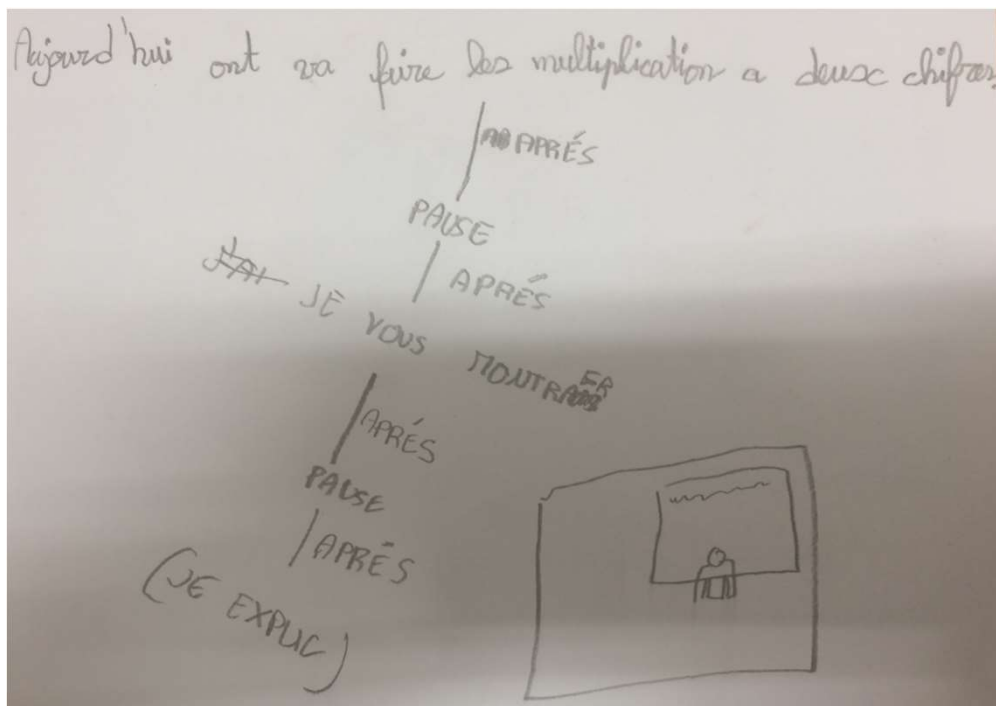 Aujourd'hui ont va faire les multiplication a deux chifres
APRÉS
PAUSE
APRÉS
J'AI JE VOUS MONTRAER
APRÉS
PAUSE
APRÉS
(JE EXPLIC)